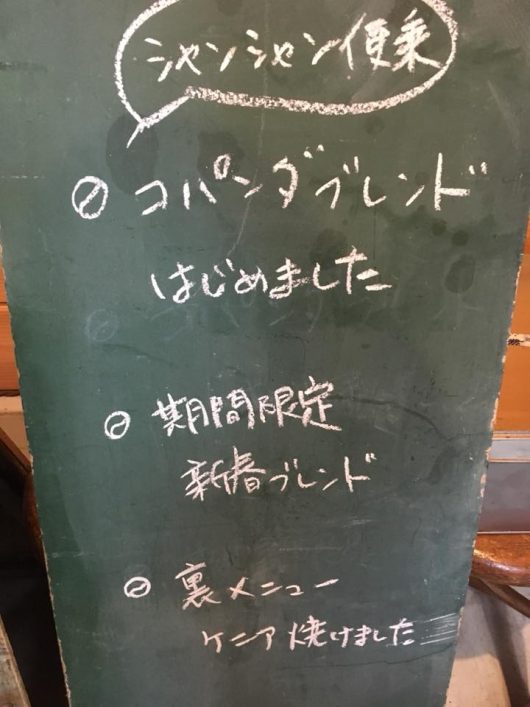 シャンシャン便乗
コパンダブレンド
はじめました
期間限定
新春ブレンド
裏メニュー
ケニア焼けました